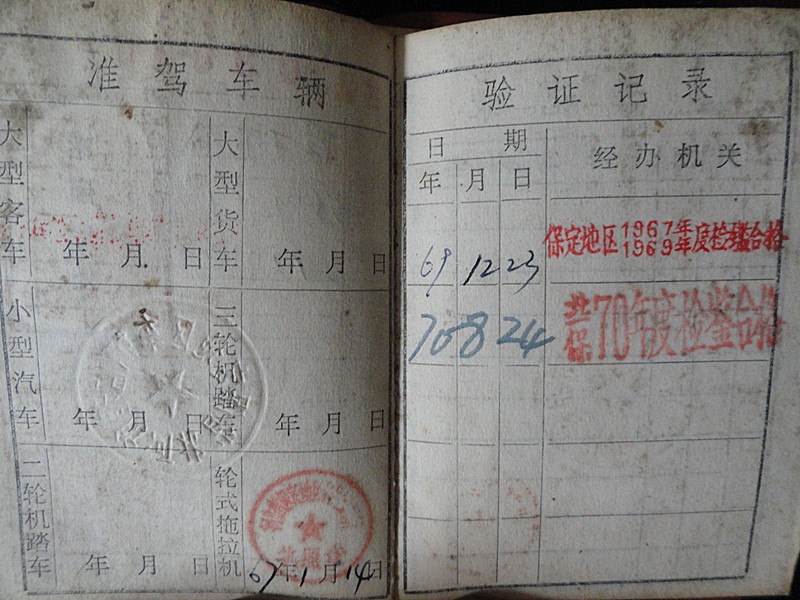 准驾车辆
大型客车 年 月 日
大型货车 年 月 日
小型汽车 年 月 日
三轮机踏车 年 月 日
二轮机踏车 年 月 日
轮式拖拉机 67年1月14日
验证记录
日期 经办机关
年 月 日
69 12 23 保定地区1967年1969年度检验合格
70 8 24 70年度检鉴合格